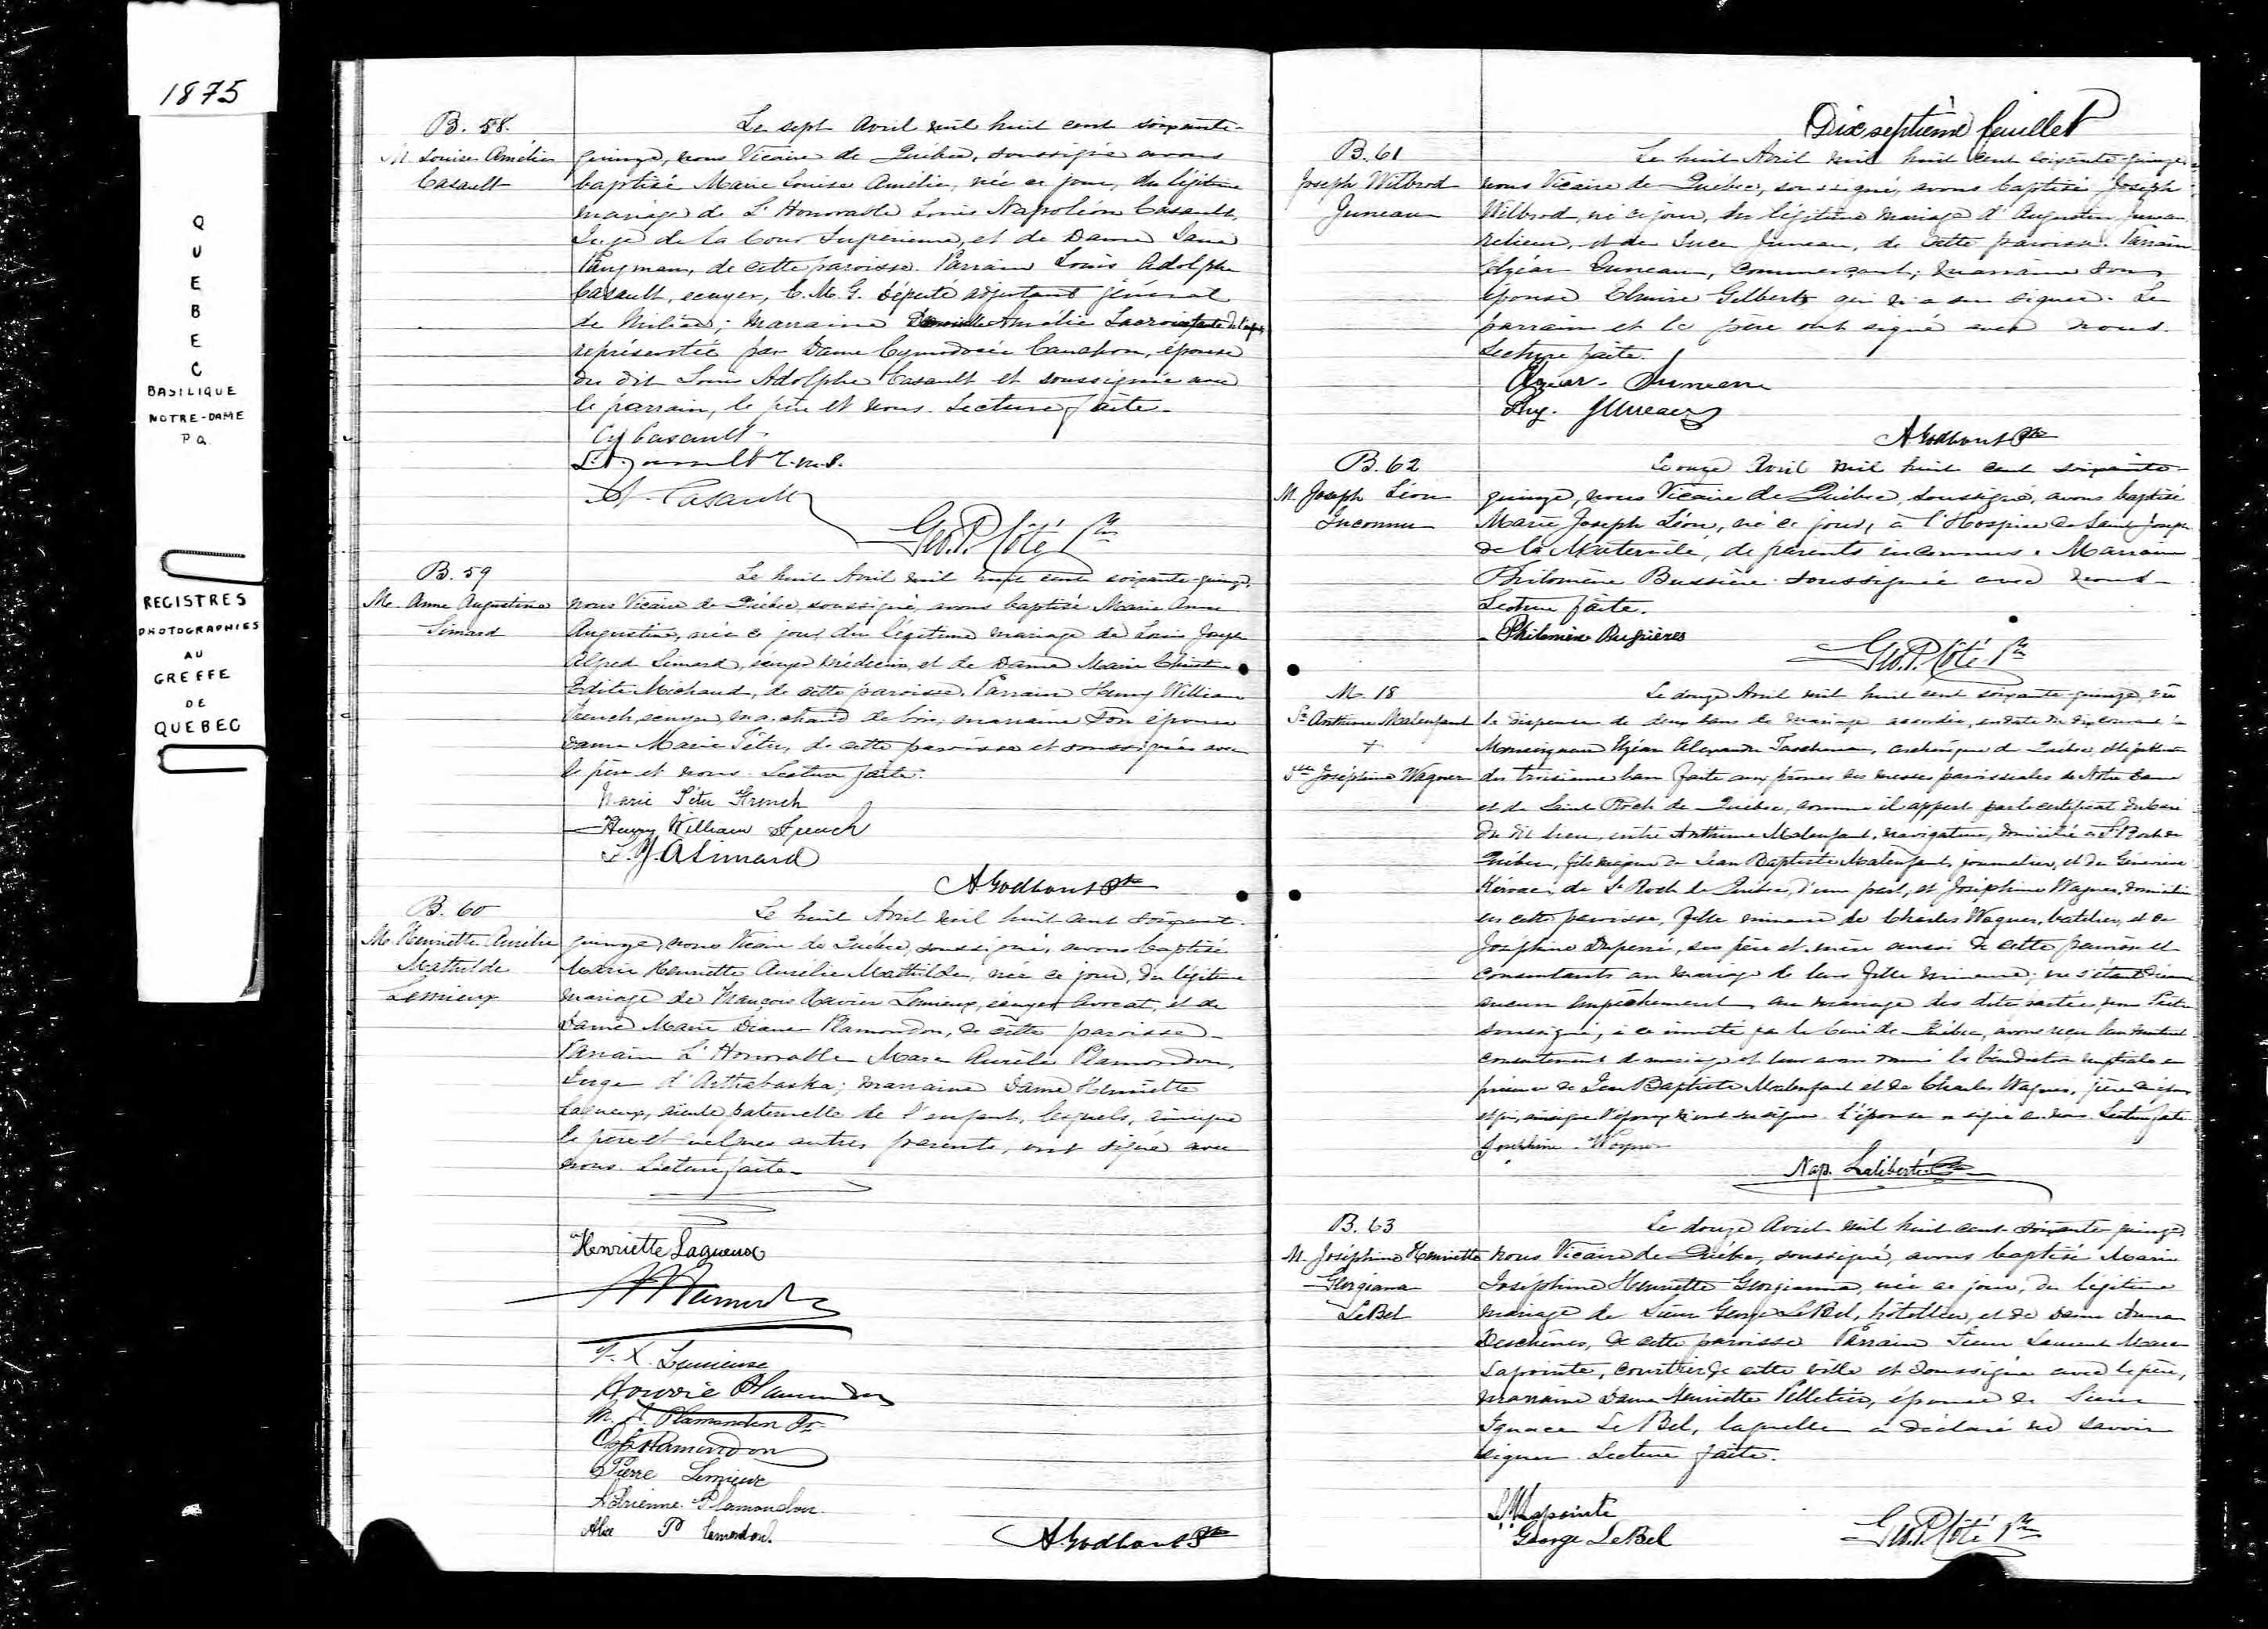 1875
QUEBEC
BASILIQUE
NOTRE-DAME
P.Q.
REGISTRES
PHOTOGRAPHIES
AU
GREFFE
DE
QUEBEC
B. 58.
M. Louise Amélie
Casault
Le sept Avril mil huit cent soixante-
quinze, nous Vicaire de Québec, soussigné avons
baptisé Marie Louise Amélie, née ce jour, du légitime
mariage de L'Honorable Louis Napoléon Casault,
Juge de la Cour Supérieure, et de Dame Jane
Pangman, de cette paroisse. Parrain Louis Adolphe
Casault, écuyer, C.M.G. Député adjutant général
de Milice; marraine Amélie Lacroix
représentée par Dame Cymodocée Cauchon, épouse
du dit Louis Adolphe Casault et soussignée avec
le parrain, le père et nous. Lecture faite.
Casault
Casault
Geo. P. Côté Ptre
B. 59
M. Anne Augustine
Simard
Le huit Avril mil huit cent soixante-quinze,
nous Vicaire de Québec, soussigné, avons baptisé Marie Anne
Augustine, née ce jour du légitime mariage de Louis Joseph
Alfred Simard, écuyer Médecin, et de Dame Marie
Edite Michaud, de cette paroisse. Parrain Henry William
French, écuyer, marchand de bois, marraine son épouse
Dame Marie Têtu, de cette paroisse et soussignés avec
le père et nous. Lecture faite.
Marie Têtu French
Henry William French
L. J. A Simard
A Godbout Ptre
B. 60
M. Henriette Aurélie
Mathilde
Lemieux
Le huit Avril mil huit cent soixante-
quinze, nous Vicaire de Québec, soussigné, avons baptisé
Marie Henriette Aurélie Mathilde, née ce jour, du légitime
mariage de François Xavier Lemieux, écuyer Avocat, et de
Dame Marie Diane Plamondon, de cette paroisse.
Parrain L'Honorable Marc Aurèle Plamondon,
Juge d'Arthabaska; marraine Dame Henriette
Lagueux, aieule paternelle de l'enfant, lesquels, ainsique
le père et quelques autres parents, ont signé avec
nous. Lecture faite.
Henriette Lagueux
F. X. Lemieux
Plamondon
M. A. Plamondon Jr
Plamondon
Pierre Lemieux
Adrienne Plamondon
Plamondon
A Godbout Ptre
Dix septième feuillet
B. 61
Joseph Wilbrod
Juneau
Le huit Avril mil huit cent soixante-quinze,
nous Vicaire de Québec, soussigné, avons baptisé Joseph
Wilbrod, né ce jour, du légitime mariage d'Augustin Juneau
relieur, et de Luce Juneau, de cette paroisse. Parrain
Elzéar Juneau, commerçant; marraine son
épouse Gilbert qui n'a su signer. Le
parrain et le père ont signé avec nous.
Lecture faite.
Elzéar Juneau
Juneau
A Godbout Ptre
B. 62
M. Joseph Léon
Inconnu
Le onze Avril mil huit cent soixante-
quinze, nous Vicaire de Québec, soussigné, avons baptisé
Marie Joseph Léon, né ce jour, à l'Hospice de Saint Joseph
de la Maternité, de parents inconnus. Marraine
Philomène Bussière soussignée avec nous.
Lecture faite.
Philomène Bussières
Geo. P. Côté Ptre
M. 18
Sr Anthime Malenfant
+
Dlle Joséphine Wagner
Le douze Avril mil huit cent soixante-quinze, vu
la dispense de deux bans de mariage accordée, en date du dix courant
Monseigneur Elzéar Alexandre Taschereau, archevêque de Québec,
du troisième ban faite aux prônes des messes paroissiales de Notre Dame
et de Saint Roch de Québec, comme il appert par le certificat du Curé
du dit lieu, entre Anthime Malenfant, navigateur, domicilié à St Roch de
Québec, fils majeur de Jean Baptiste Malenfant, journalier, et de Geneviève
Kirouac, de St Roch de Québec, d'une part, et Joséphine Wagner, domiciliée
en cette paroisse, fille mineure de Charles Wagner, batelier, et de
Joséphine Duperré, ses père et mère aussi de cette paroisse et
consentants au mariage de leur fille mineure; ne s'étant découvert
aucun empêchement au mariage des dites parties, nous Prêtre
soussigné, à ce invité par le Curé de Québec, avons reçu leur mutuel
consentement de mariage et leur avons donné la bénédiction nuptiale en
présence de Jean Baptiste Malenfant et de Charles Wagner,
ainsique l'époux n'ont su signer. L'épouse a signé avec nous. Lecture faite.
Joséphine Wagner
Nap. Laliberté Ptre
B. 63
M. Joséphine Henriette
Georgiana
LeBel
Le douze Avril mil huit cent soixante-quinze
nous Vicaire de Québec, soussigné, avons baptisé Marie
Joséphine Henriette Georgianna, née ce jour, du légitime
mariage de Sieur George LeBel, hôtellier, et de Dame Anna
Deschênes, de cette paroisse. Parrain Sieur Laurent Marc
Lapointe, courtier de cette ville et soussigné avec le père,
marraine Dame Henriette Pelletier, épouse de Sieur
Ignace Le Bel, laquelle a déclaré ne savoir
signer. Lecture faite.
L. M. Lapointe
George LeBel
Geo. P. Côté Ptre